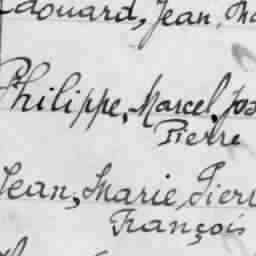 Edouard, Jean,
Philippe, Marcel, Jos
Pierre
Jean, Marie, Pierr
François